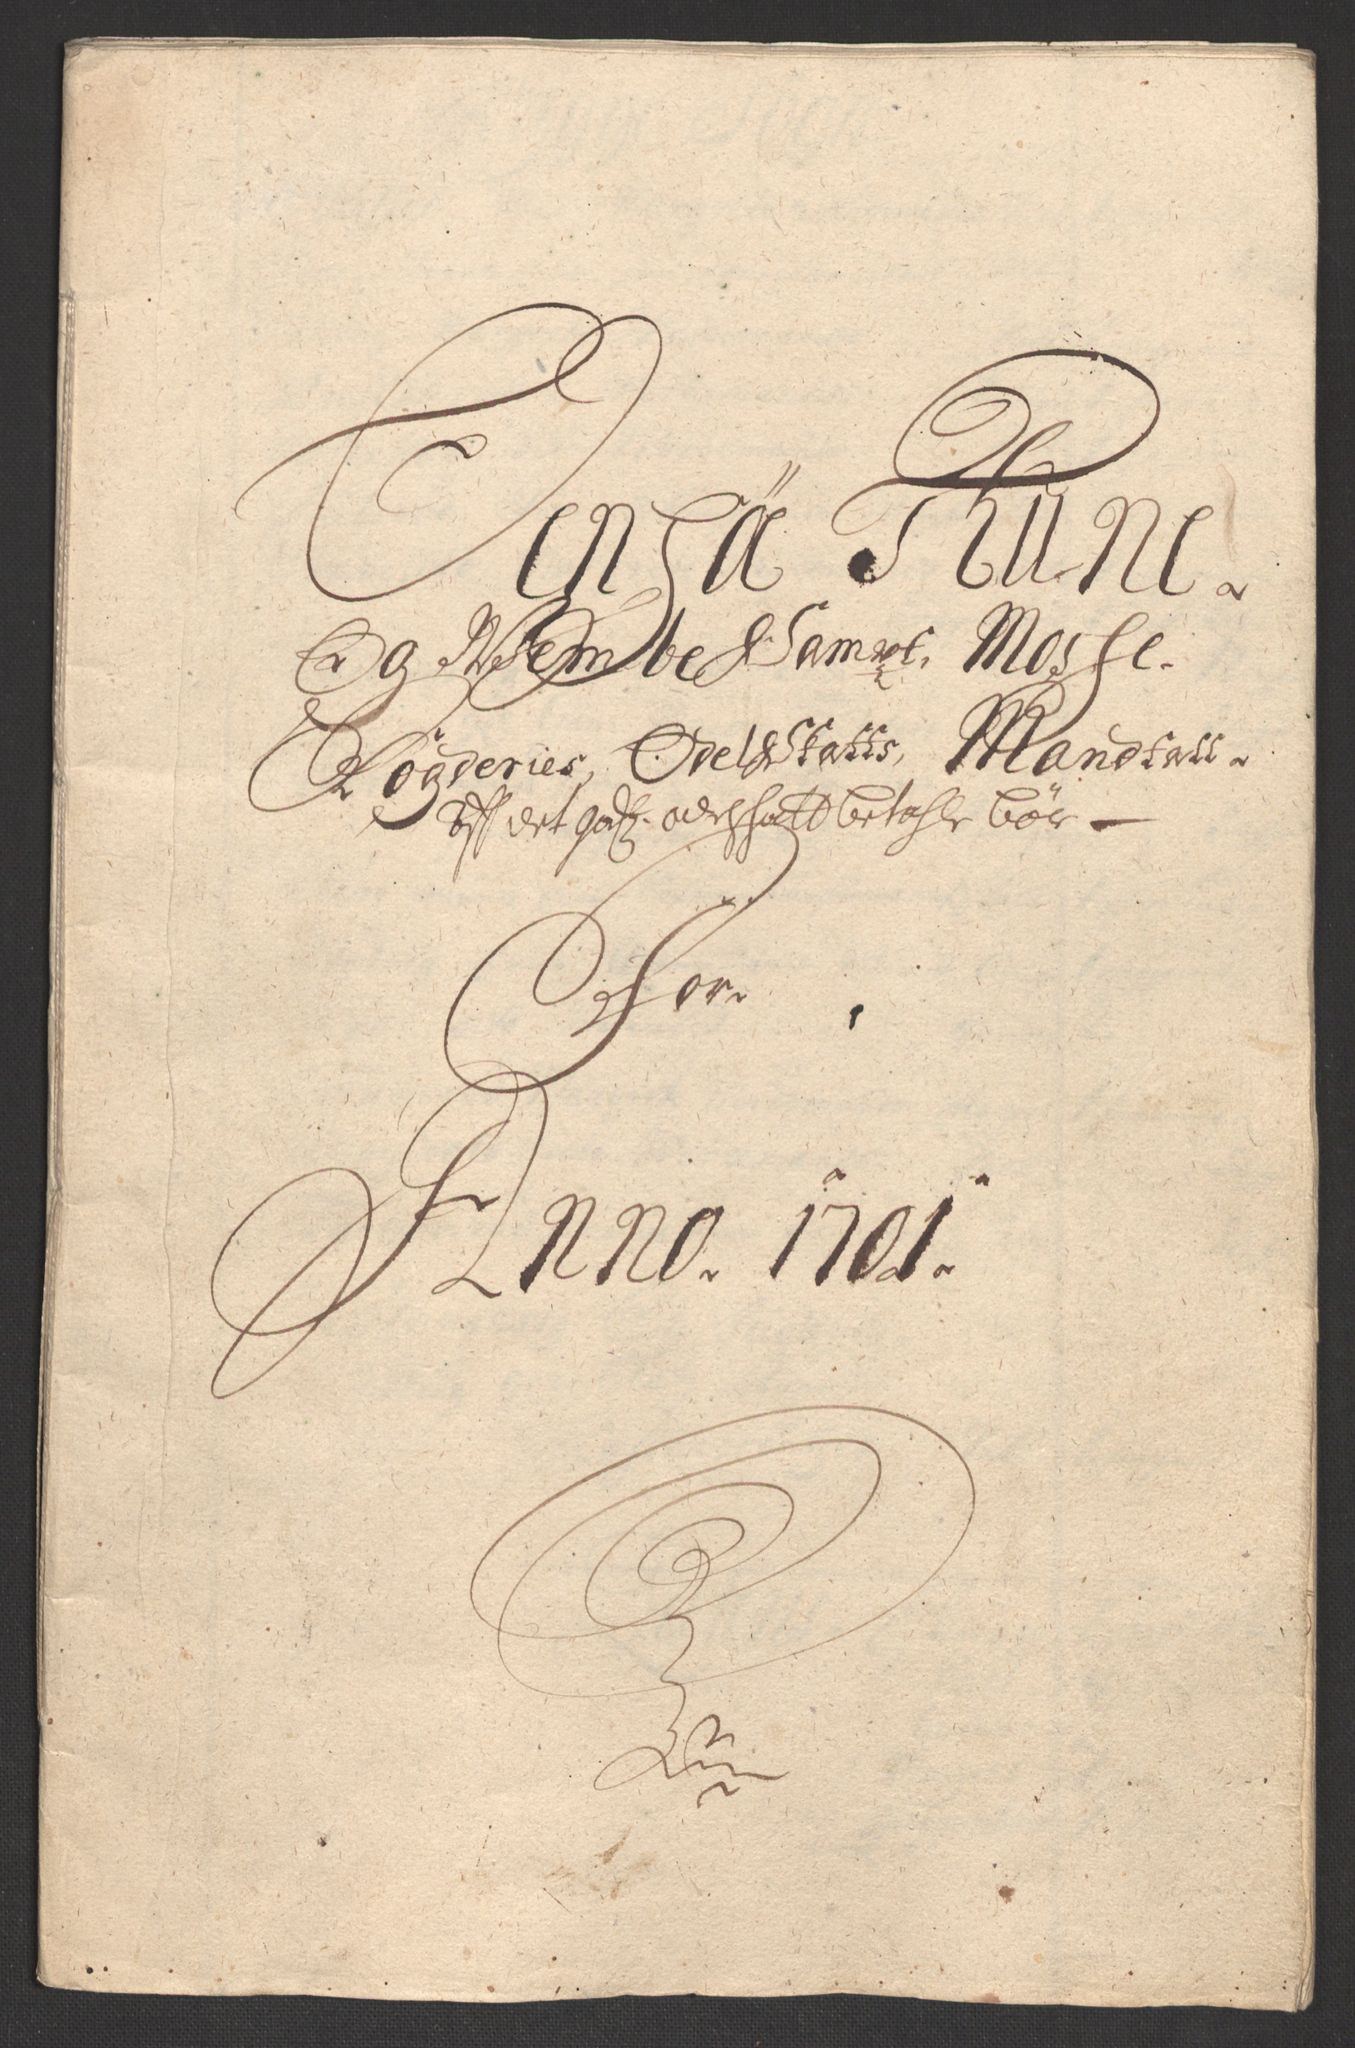 Tensø Thune.
Og Wembe Sampt. Mosse.
Fogderies, Odel Skatts, Mandtall.
Aff det godz. odelskatt betahle bör —
For.
Anno. 1701.